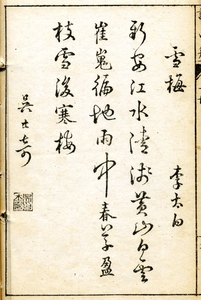 雪梅
李太白
新安江水清淺黃山白雲
崔嵬徧地雨中春草盈
枝雪後寒梅
吳士奇